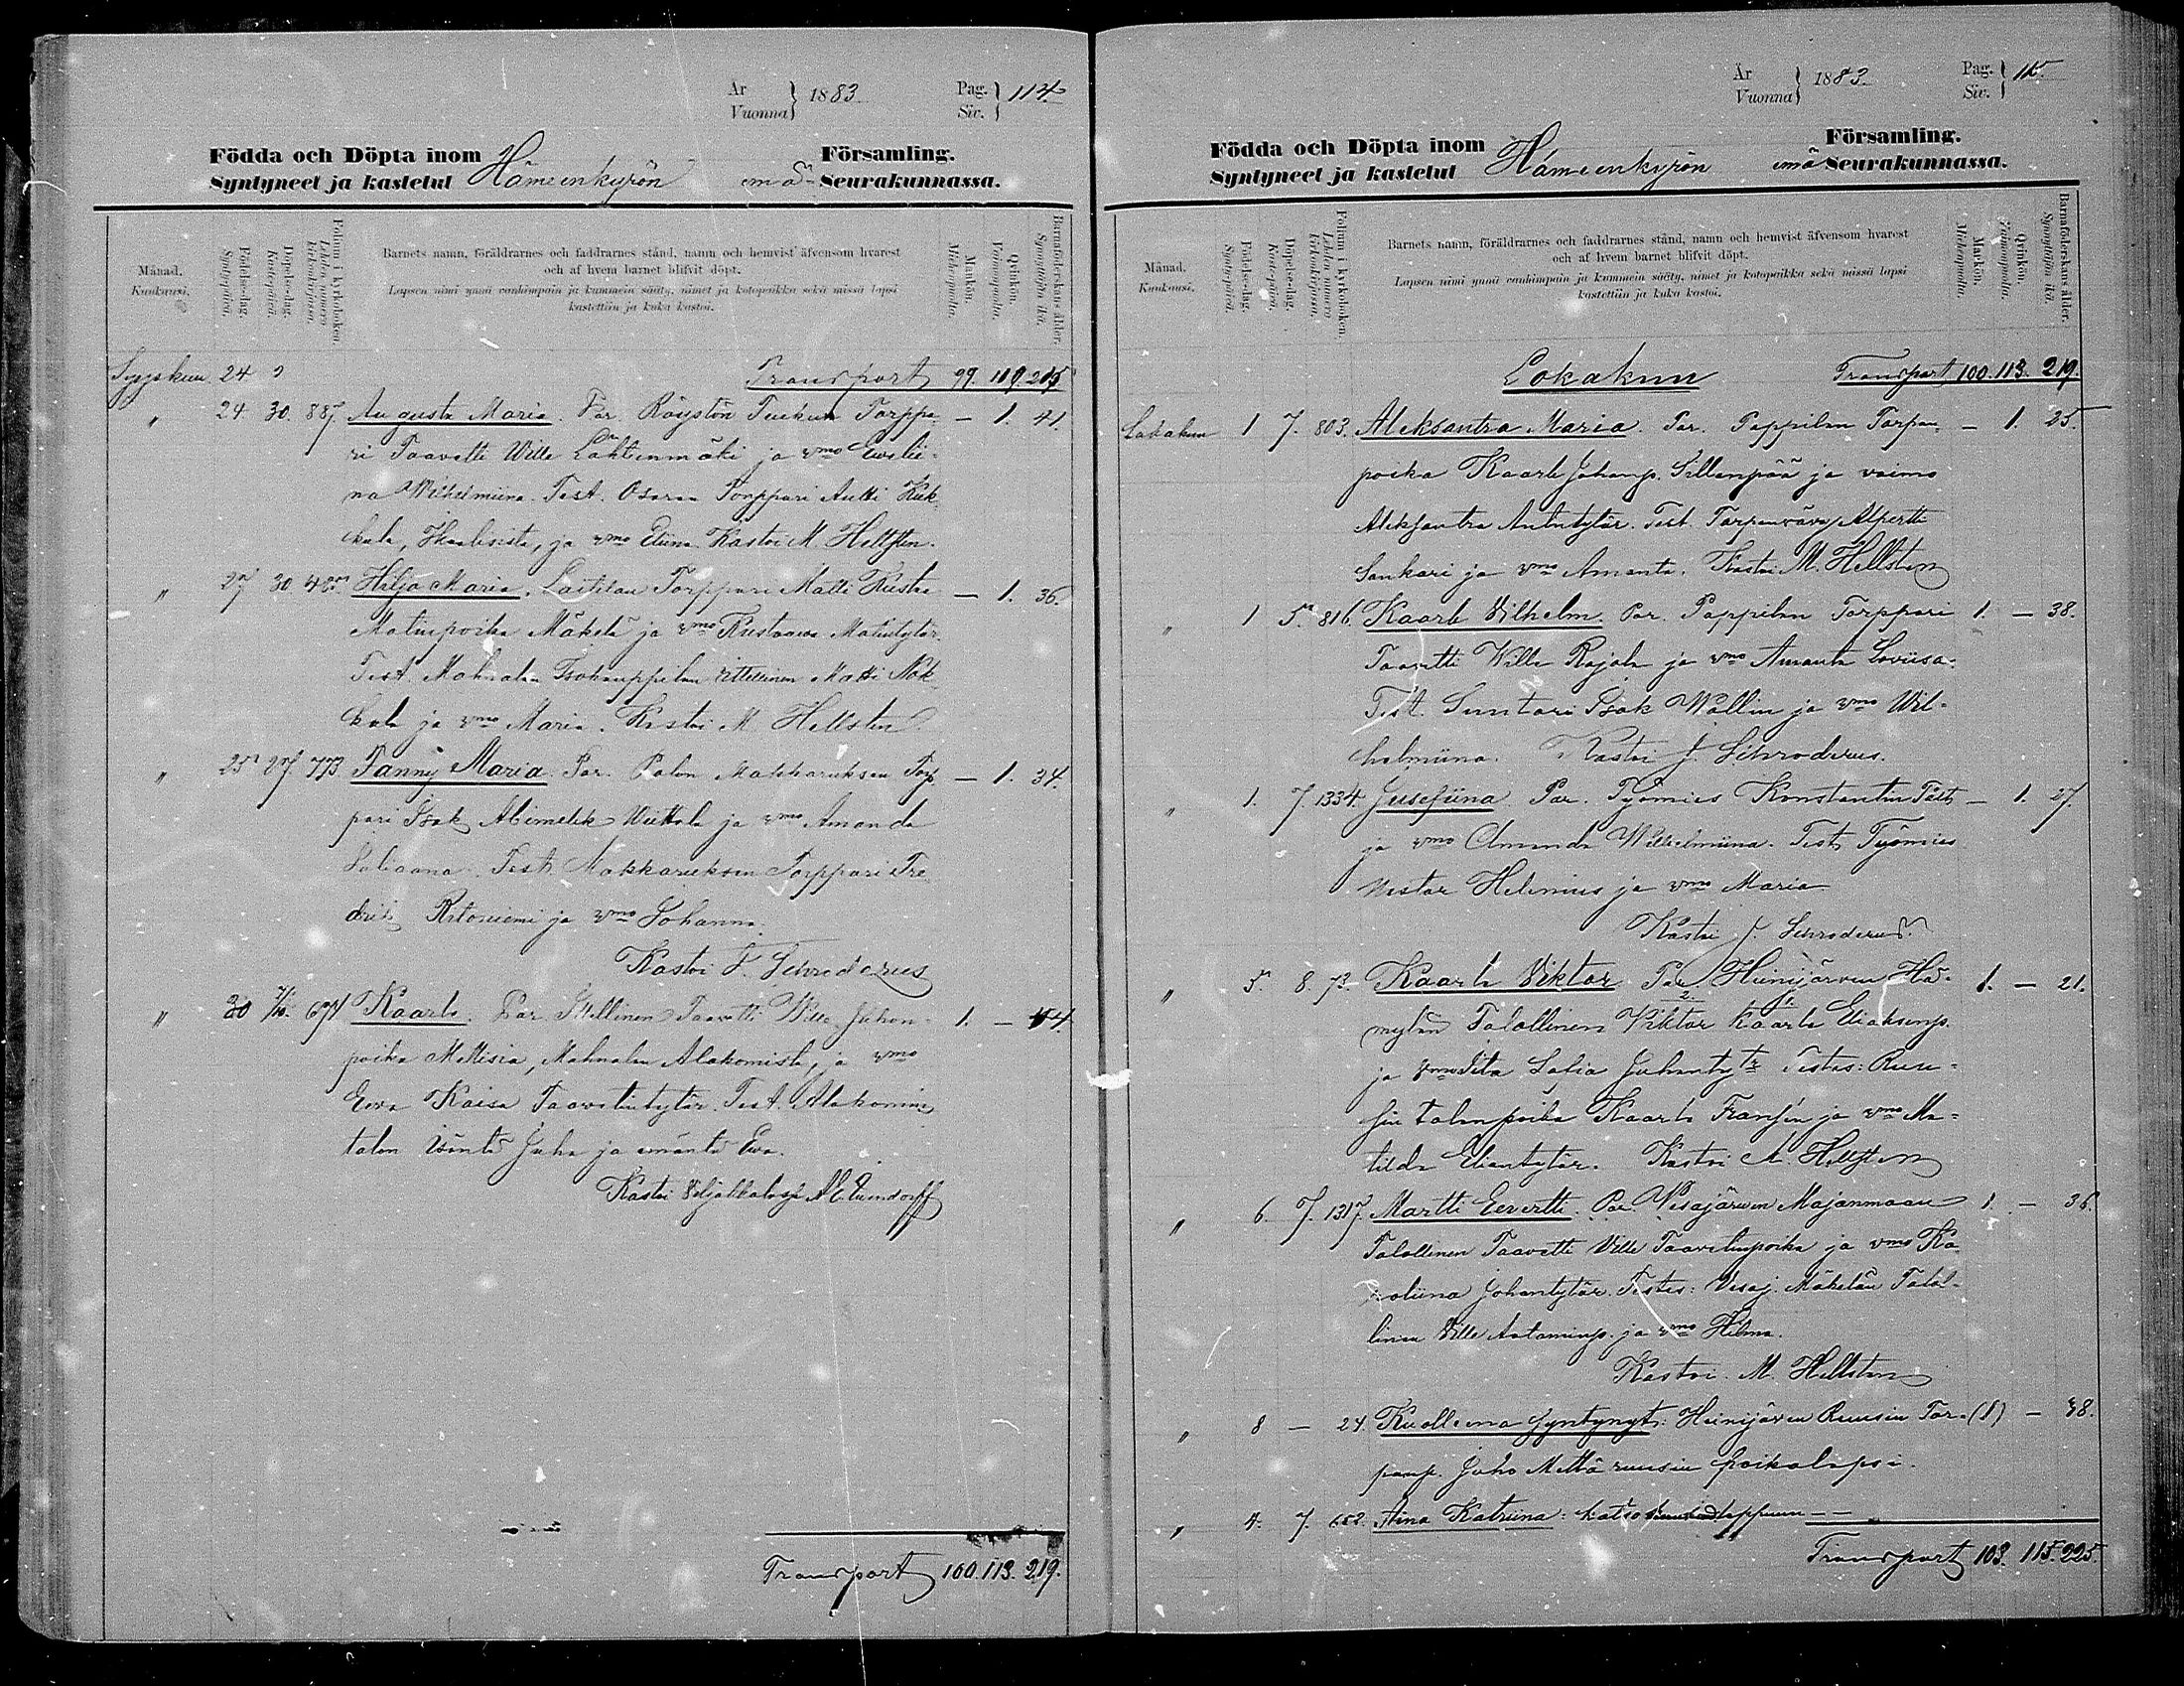 År
Vuonna } 1883
Pag.
Siv. } 114
Födda och Döpta inom
Syntyneet ja kastetut Hämeenkyrön emä- Församling.
Seurakunnassa.
Månad.
Kuukausi.
Födelse-dag.
Syntypäivä.
Döpelse-dag.
Kastepäivä.
Folium i kyrkoboken.
Lehden numero kirkonkirjassa.
Barnets namn, föräldrarnes och faddrarnes stånd, namn och hemvist äfvensom hvarest
och af hvem barnet blifvit döpt.
Lapsen nimi ynnä vanhimpain ja kummein sääty, nimet ja kotopaikka sekä missä lapsi
kastettiin ja kuka kastoi.
Mankön.
Miehenpuolia.
Qvinkön.
Vaimonpuolia.
Barnaföderskans ålder.
Synnyttäjän ikä.
Syyskuu 24 Transport 99. 109. 215
" 24. 30. 887. Augusta Maria. Par. Röystön Tuekun Torppa- — 1. 41.
ri Taavetti Wille Lähteenmäki ja vmo Ewelii-
na Wilhelmiina. Test. Osaran Torppari Antti Kuk-
kula, Ikaalisista, ja vmo Eliina. Kastoi M. Hellsten.
" 27 30 Hilja Maria. Laitilan Torppari Matti Kusta — 1. 36.
Matinpoika Mäkelä ja vmo Kustaawa Matintytär.
Test. Mahnalan Isohauppilan ittellinen Matti Nok-
kala ja vmo Maria. Kastoi M. Hellsten.
" 25 27. 773 Fanny Maria. Par. Palon Makkaruksen Torp- — 1. 34.
pari Isak Abimelek Wiettala ja vmo Amanda
Juliaana. Test. Makkaruksen Torppari Fre-
drik Ritoniemi ja vmo Johanna.
Kastoi J. Schroderus
" 30 7/10. 671 Kaarlo. Par. Itellinen Taavetti Wille Juhon- 1. — 44
poika Mettisia, Mahnalan Alakomista, ja vmo
Ewa Kaisa Taavetintytär. Test. Alakomin
talon isäntä Juha ja emäntä Ewa.
Kastoi Viljakkalassa
Transport 100. 113. 219.
År
Vuonna } 1883
Pag.
Siv. } 115.
Födda och Döpta inom
Syntyneet ja kastetut Hämeenkyrön emä Församling.
Seurakunnassa.
Månad.
Kuukausi.
Födelse-dag.
Syntypäivä.
Döpelse-dag.
Kastepäivä.
Folium i kyrkoboken.
Lehden numero kirkonkirjassa.
Barnets namn, föräldrarnes och faddrarnes stånd, namn och hemvist äfvensom hvarest
och af hvem barnet blifvit döpt.
Lapsen nimi ynnä vanhimpain ja kummein sääty, nimet ja kotopaikka sekä missä lapsi
kastettiin ja kuka kastoi.
Mankön.
Miehenpuolia.
Qvinkön.
Vaimonpuolia.
Barnaföderskans ålder.
Synnyttäjän ikä.
Lokakuu Transport 100. 113. 219.
Lokakuu 1 7. 803. Aleksantra Maria. Par. Pappilan Torpan- — 1. 25.
poika Kaarle Johanp. Sillenpää ja vaimo
Aleksantra Antintytär. Test. Torpanvävy Alpertti
Sankari ja vmo Amanta. Kastoi M. Hellsten
" 1 5. 816. Kaarle Vilhelm. Par. Pappilan Torppari 1. — 38.
Taavetti Wille Rajala ja vmo Amanta Loviisa.
Test. Suntari Isak Wallin ja vmo Wil-
helmiina. Kastoi J. Schroderus.
" 1. 7. 1334. Jusefiina. Par. Työmies Konstantin — 1. 27
ja vmo Amanda Wilhelmiina. Test. Työmies
Nestor Helenius ja vmo Maria
Kastoi J. Schroderus.
" 5. 8. 73. Kaarle Viktor. Par. Heinijärven Hä- 1. — 21.
mylän Talollinen Viktor Kaarle Eliaksenp.
ja vmo Iita Sofia Juhantytr. Testes: Ruu-
sin talonpoika Kaarle Fransén ja vmo Ma-
tilda Eliantytär. Kastoi M. Hellsten
" 6. 7. 1317. Martti Eevertti. Par. Vesajärven Majanmaan 1. — 36.
Talollinen Taavetti Wille Taavetinpoika ja vmo Ka-
roliina Johantytär. Testes: Vesaj. Mäkelän Talol-
linen Ville Antominp. ja vmo Hilma.
Kastoi M. Hellsten
" 8 — 24. Kuolleena syntynyt: Heinijärven Ruusin Tor- (1) — 38.
panp. Juho Mettäruusin poikalapsi.
" 4. 7. 652. Aina Katriina: katso
Transport 103. 115. 225.